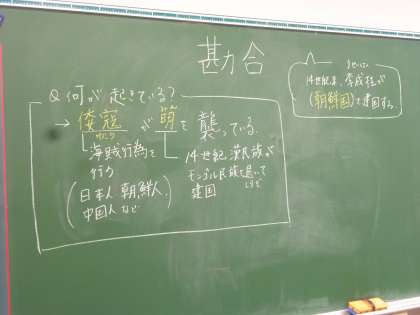 勘合
Q 何が起きている?
→ 倭寇 が 明 を 襲っている。
海賊行為を
行う
(日本人、朝鮮人、
中国人など)
14世紀、漢民族が
モンゴル民族を
建国
14世紀末、李成桂が
(朝鮮国)を建国する。